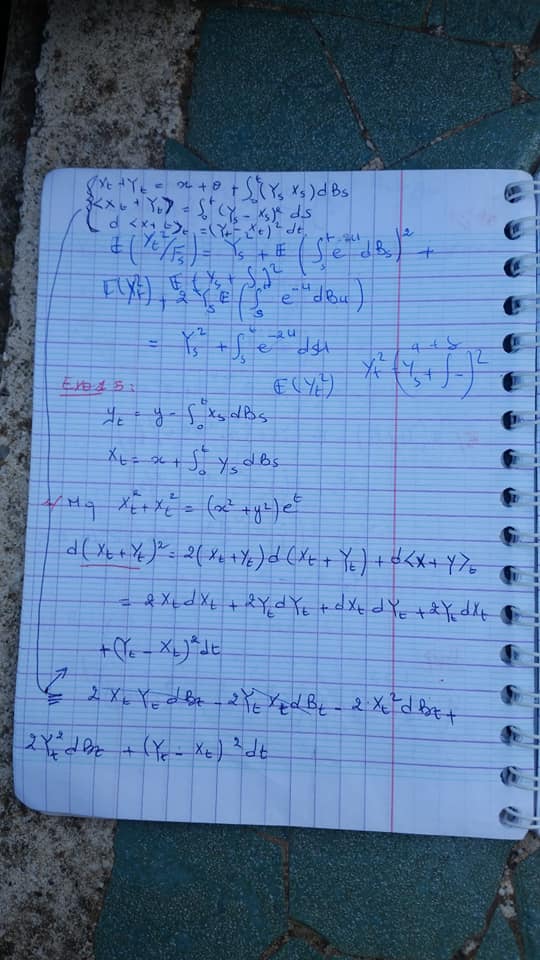 X_t + Y_t = x + θ + ∫_0^t (Y_s X_s) dB_s
<X_t + Y_t> = ∫_0^t (Y_s - X_s)² ds
d <x + t>_t = (Y_t - X_t)² dt
E(Y_t²/F_s) = Y_s + E(∫_s^t e^{-2u} dB_s)² +
E(Y_s + ∫_s)²
E(Y_t²) + 2 Y_s E(∫_s e^{-u} dBu)
= Y_s² + ∫_s^t e^{-2u} du
E(Y_t²) Y_t² = (Y_s + ∫ -)²
Exo 5:
y_t = y - ∫_0^t X_s dB_s
X_t = x + ∫_0^t Y_s dB_s
1/ Mq X_t² + X_t² = (x² + y²) e^t
d(X_t + Y_t)² = 2(X_t + Y_t) d(X_t + Y_t) + d<X + Y>_t
= 2X_t dX_t + 2Y_t dY_t + dX_t dY_t + 2Y_t dX_t
+ (Y_t - X_t)² dt
= 2 X_t Y_t dB_t - 2Y_t X_t dB_t - 2 X_t² dB_t +
2Y_t² dB_t + (Y_t - X_t)² dt